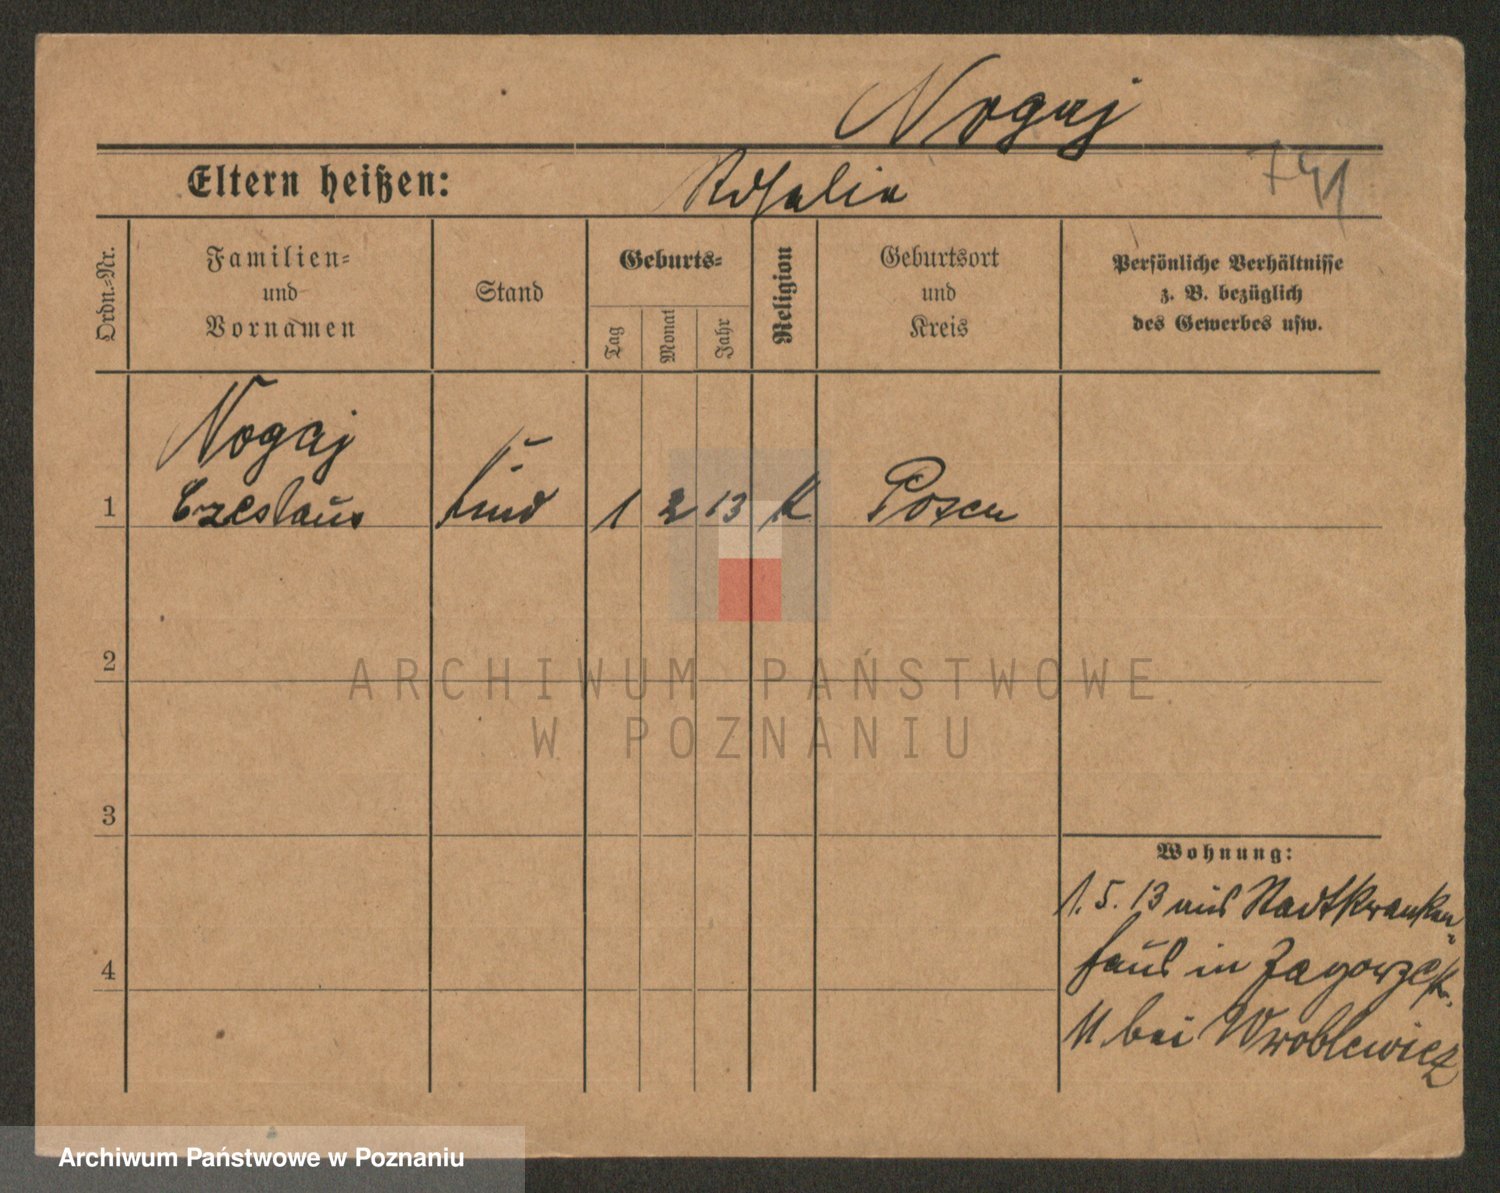 Nogaj
Eltern heißen: Rosalia
741
Ordn.-Nr.
Familien-
und
Vornamen
Stand
Geburts-
Tag
Monat
Jahr
Religion
Geburtsort
und
Kreis
Persönliche Verhältnisse
z. B. bezüglich
des Gewerbes usw.
Nogaj
1 Czeslaus Kind 1 2 13 k Posen
2
3
4
Wohnung:
1. 5. 13 aus Stadtkranken-
haus in Zagorzestr.
11 bei Wroblewicz
ARCHIWUM PAŃSTWOWE
W POZNANIU
Archiwum Państwowe w Poznaniu